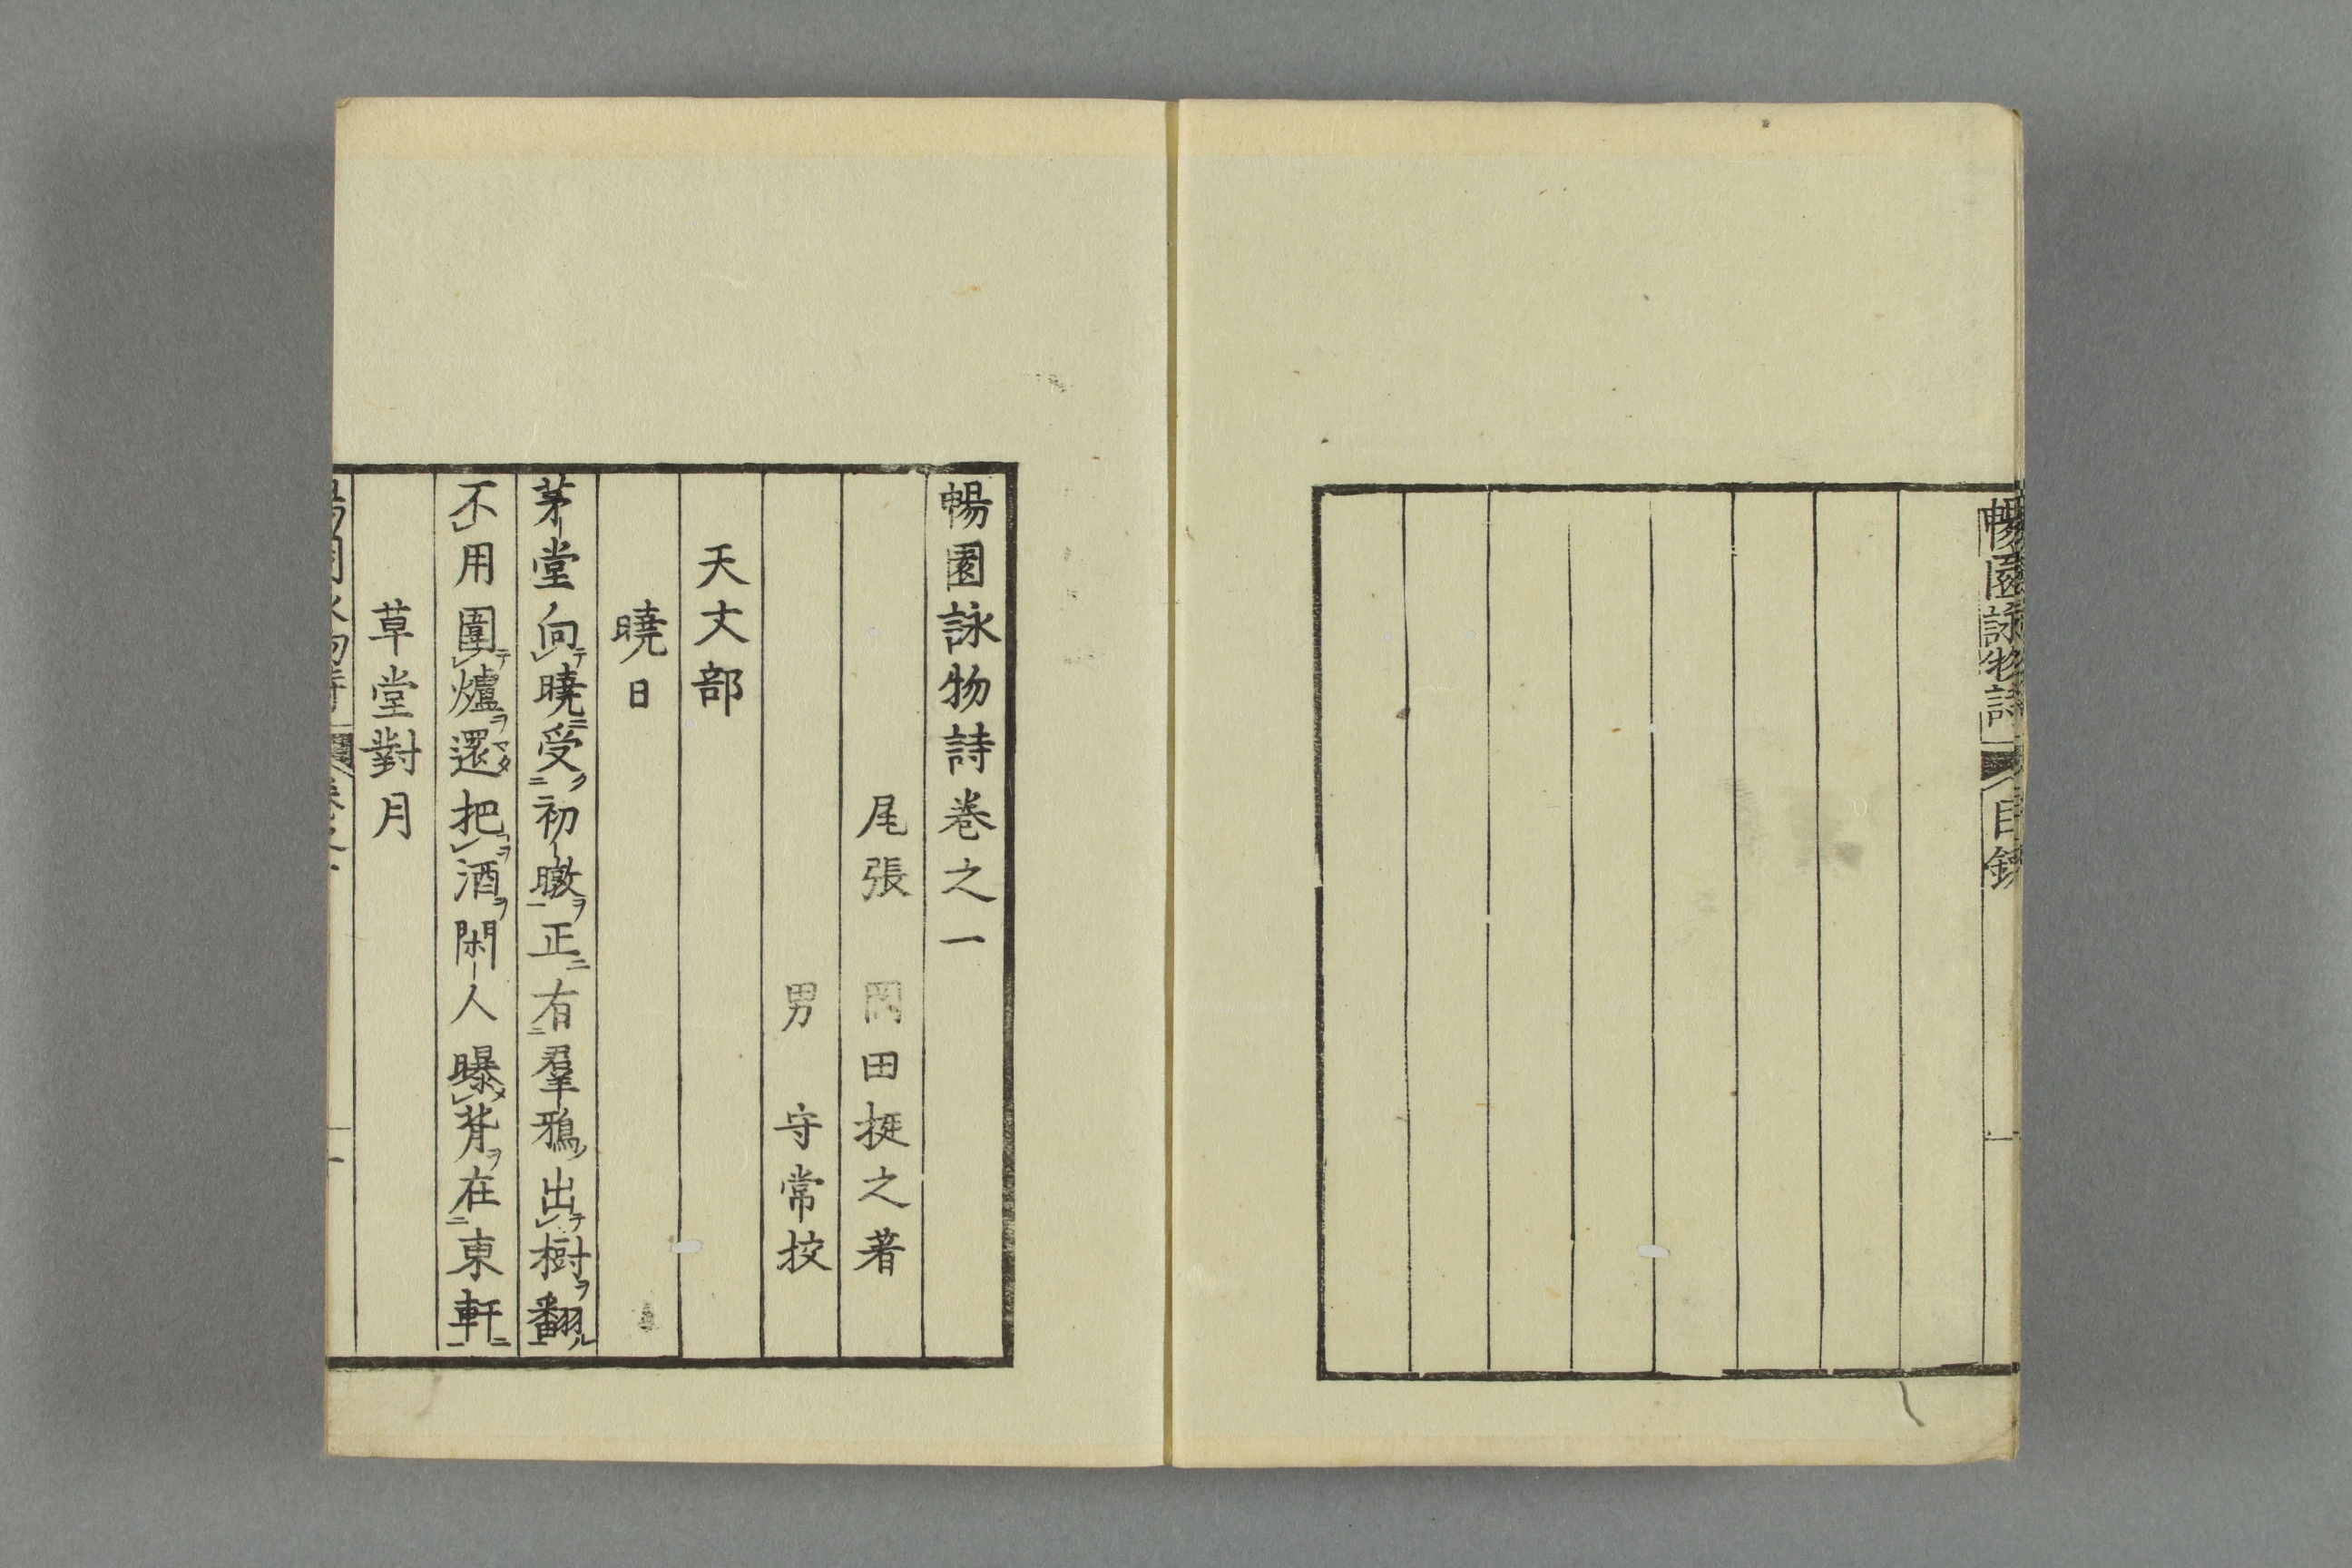 暢園詠物詩 目錄
暢園詠物詩巻之一
尾張 岡田挺之著
男 守常挍
天文部
曉日
茅堂向曉受初暾正有羣鴉出樹翻
不用圍爐還把酒閑人曝背在東軒
草堂對月